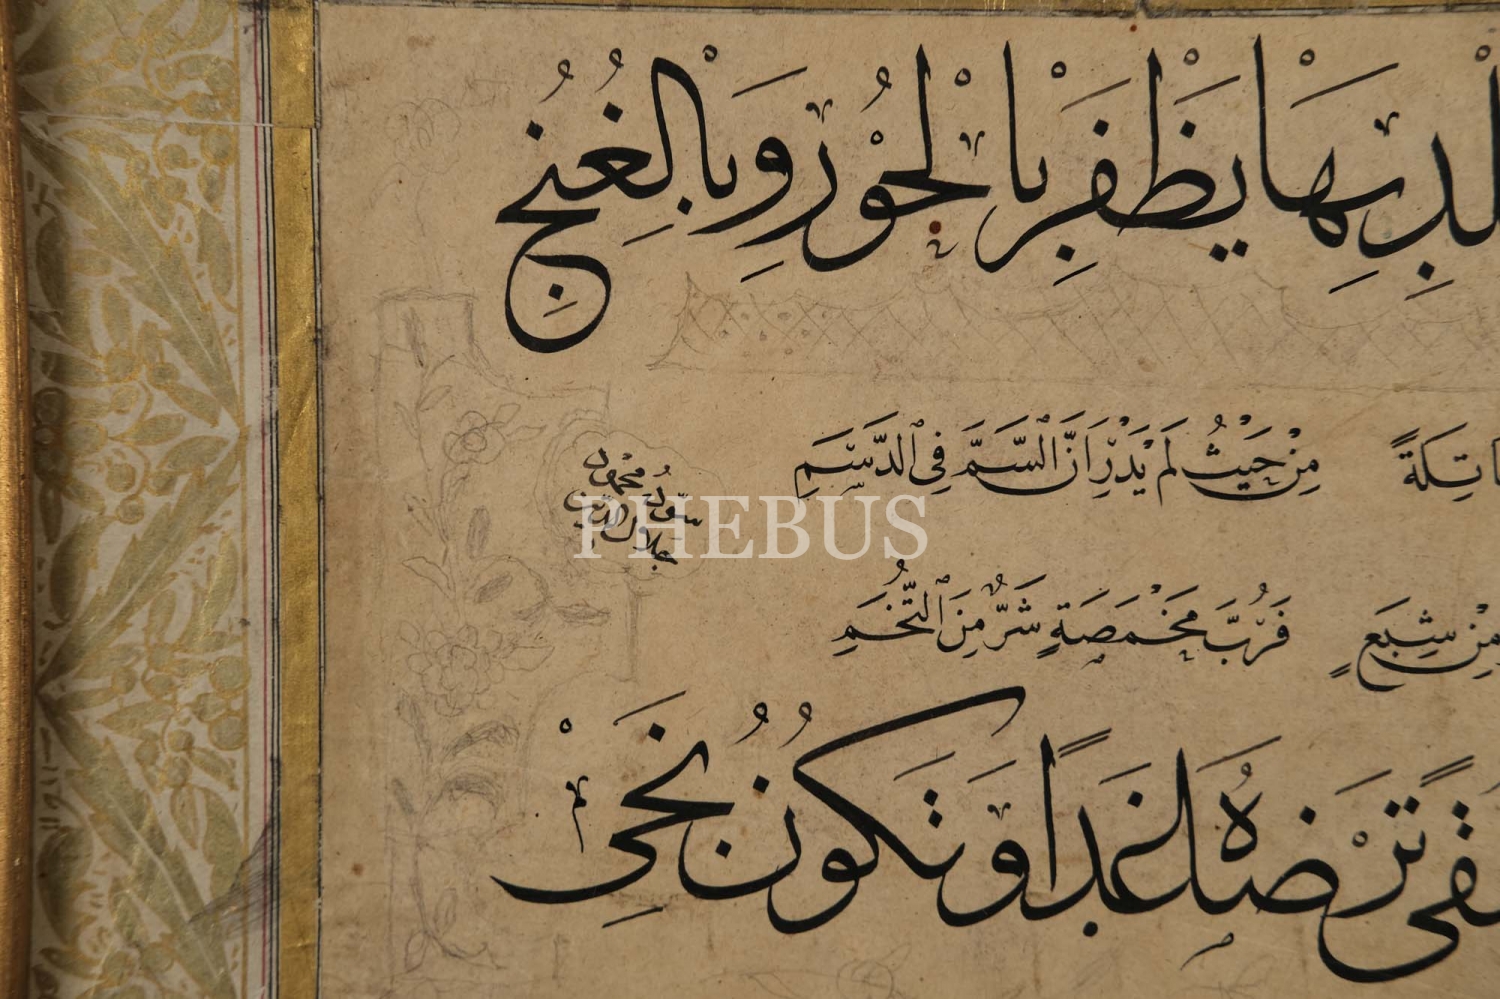 لدِ بِهَا يَظْفَرْ بِالْحُورِ وَبِالْغُنُجِ
اتِلَةً مِنْ حَيْثُ لَمْ يَدْرِ اَنَّ السَّمَّ فِي الدَّسَمِ
سوّده محمود
جلال الدين
مِنْ شِبَعٍ فَرُبَّ مَخْمَصَةٍ شَرٌّ مِنَ التُّخَمِ
تقًى تَرْضَهُ لِغَدًا وَتَكُونُ نَجِيْ
PHEBUS